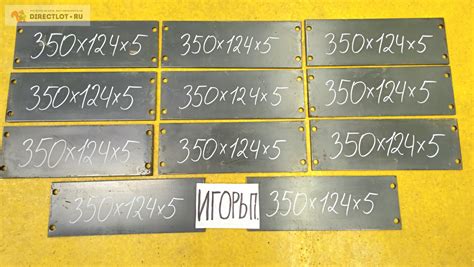 DIRECTLOT.RU
350×124×5 350×124×5 350×124×5
350×124×5 350×124×5 350×124×5
350×124×5 350×124×5 350×124×5
350×124×5 ИГОРЬ П. 350×124×5